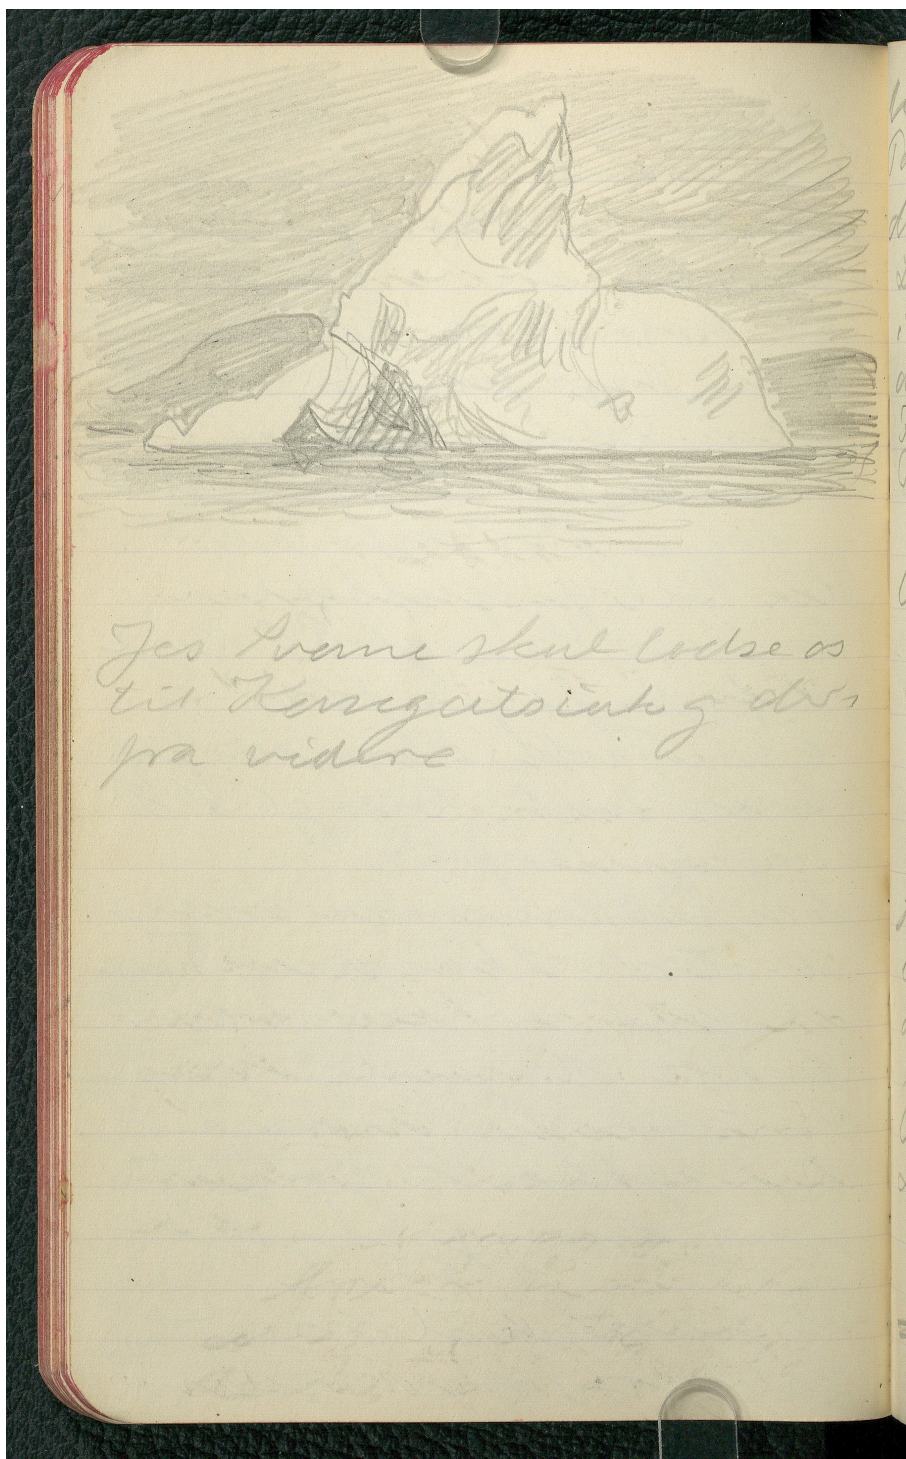 Jes Sverre skul lodse os
til Kangatsiak og der-
fra videre